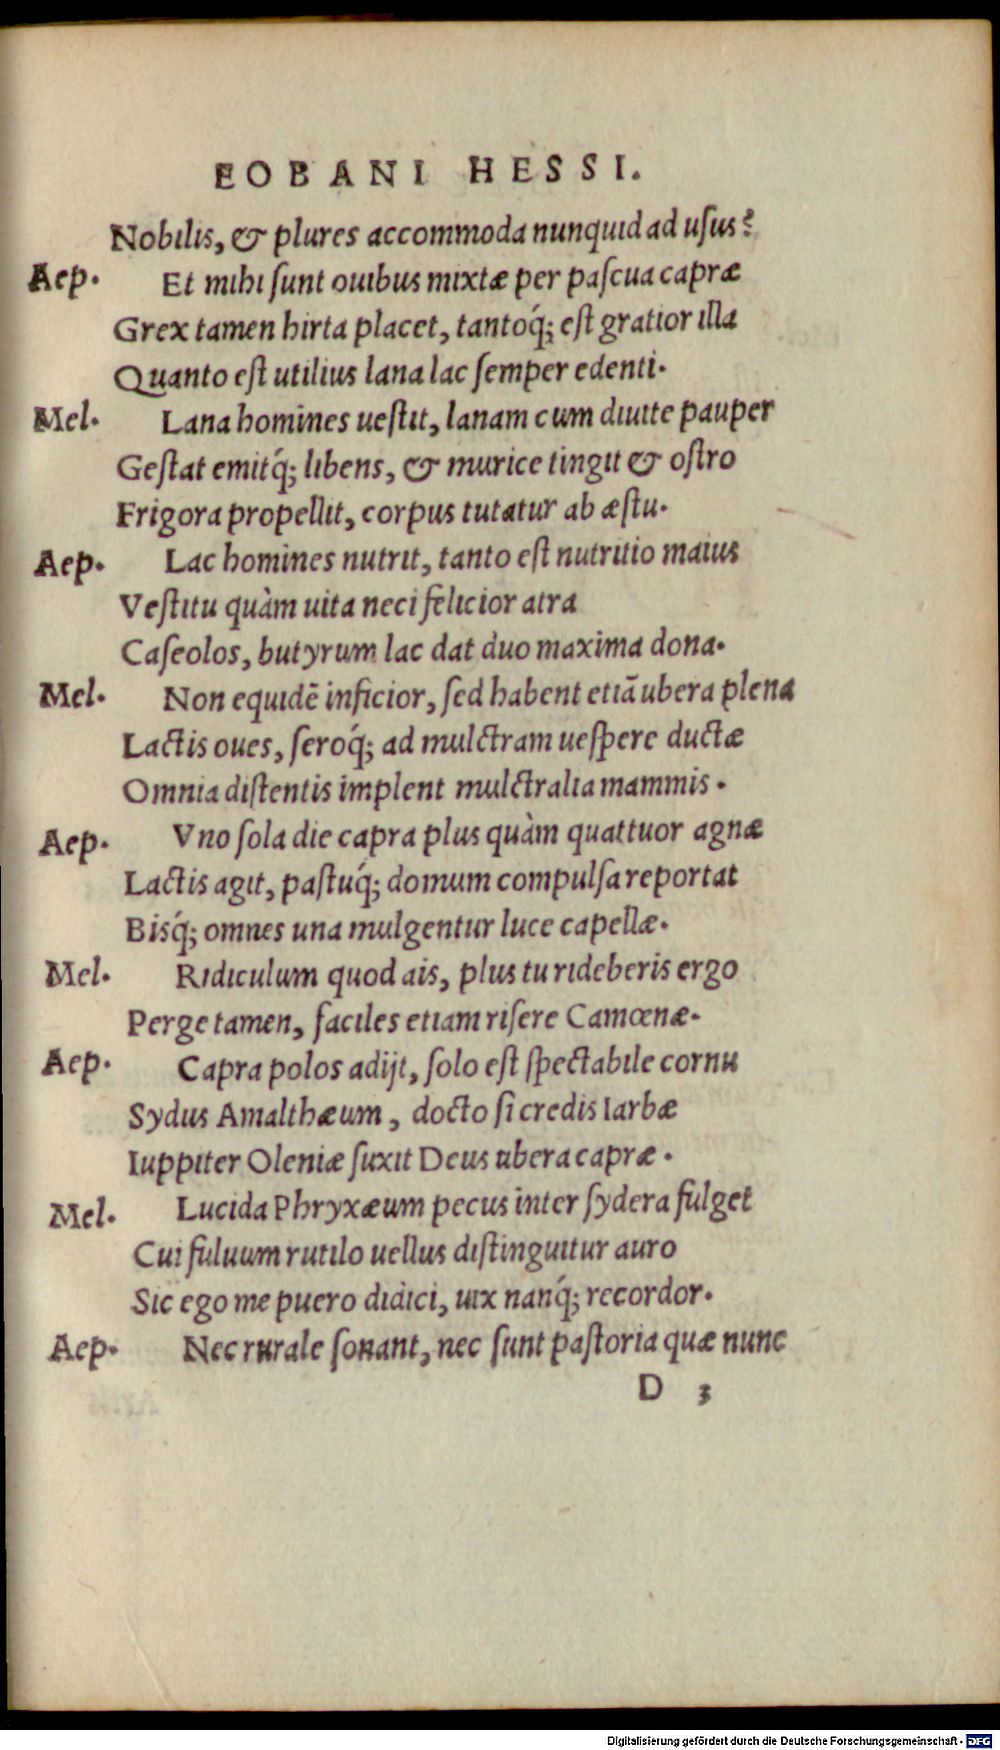 EOBANI HESSI.
Nobilis, & plures accommoda nunquid ad uſus?
Aep. Et mihi ſunt ouibus mixtæ per paſcua capræ
Grex tamen hirta placet, tantoq́; eſt gratior illa
Quanto eſt utilius lana lac ſemper edenti.
Mel. Lana homines ueſtit, lanam cum diuite pauper
Geſtat emitq́; libens, & murice tingit & oſtro
Frigora propellit, corpus tutatur ab æſtu.
Aep. Lac homines nutrit, tanto eſt nutritio maius
Veſtitu quàm uita neci felicior atra
Caſeolos, butyrum lac dat duo maxima dona.
Mel. Non equidē inficior, ſed habent etiā ubera plena
Lactis oues, ſeroq́; ad mulctram ueſpere ductæ
Omnia diſtentis implent mulctralia mammis.
Aep. Vno ſola die capra plus quàm quattuor agnæ
Lactis agit, paſtuq́; domum compulſa reportat
Bisq́; omnes una mulgentur luce capellæ.
Mel. Ridiculum quod ais, plus tu rideberis ergo
Perge tamen, faciles etiam riſere Camœnæ.
Aep. Capra polos adijt, ſolo eſt ſpectabile cornu
Sydus Amalthæum, docto ſi credis Iarbæ
Iuppiter Oleniæ ſuxit Deus ubera capræ.
Mel. Lucida Phryxæum pecus inter ſydera fulget
Cui fuluum rutilo uellus diſtinguitur auro
Sic ego me puero didici, uix nanq́; recordor.
Aep. Nec rurale ſonant, nec ſunt paſtoria quæ nunc
D 3
Digitalisierung gefördert durch die Deutsche Forschungsgemeinschaft - DFG